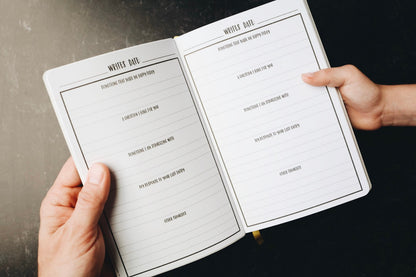 WRITER DATE
SOMETHING THAT MADE ME HAPPY TODAY
A QUESTION I HAVE FOR YOU
SOMETHING I AM STRUGGLING WITH
MY RESPONSE TO YOUR LAST ENTRY
OTHER THOUGHTS
WRITER DATE
SOMETHING THAT MADE ME HAPPY TODAY
A QUESTION I HAVE FOR YOU
SOMETHING I AM STRUGGLING WITH
MY RESPONSE TO YOUR LAST ENTRY
OTHER THOUGHTS